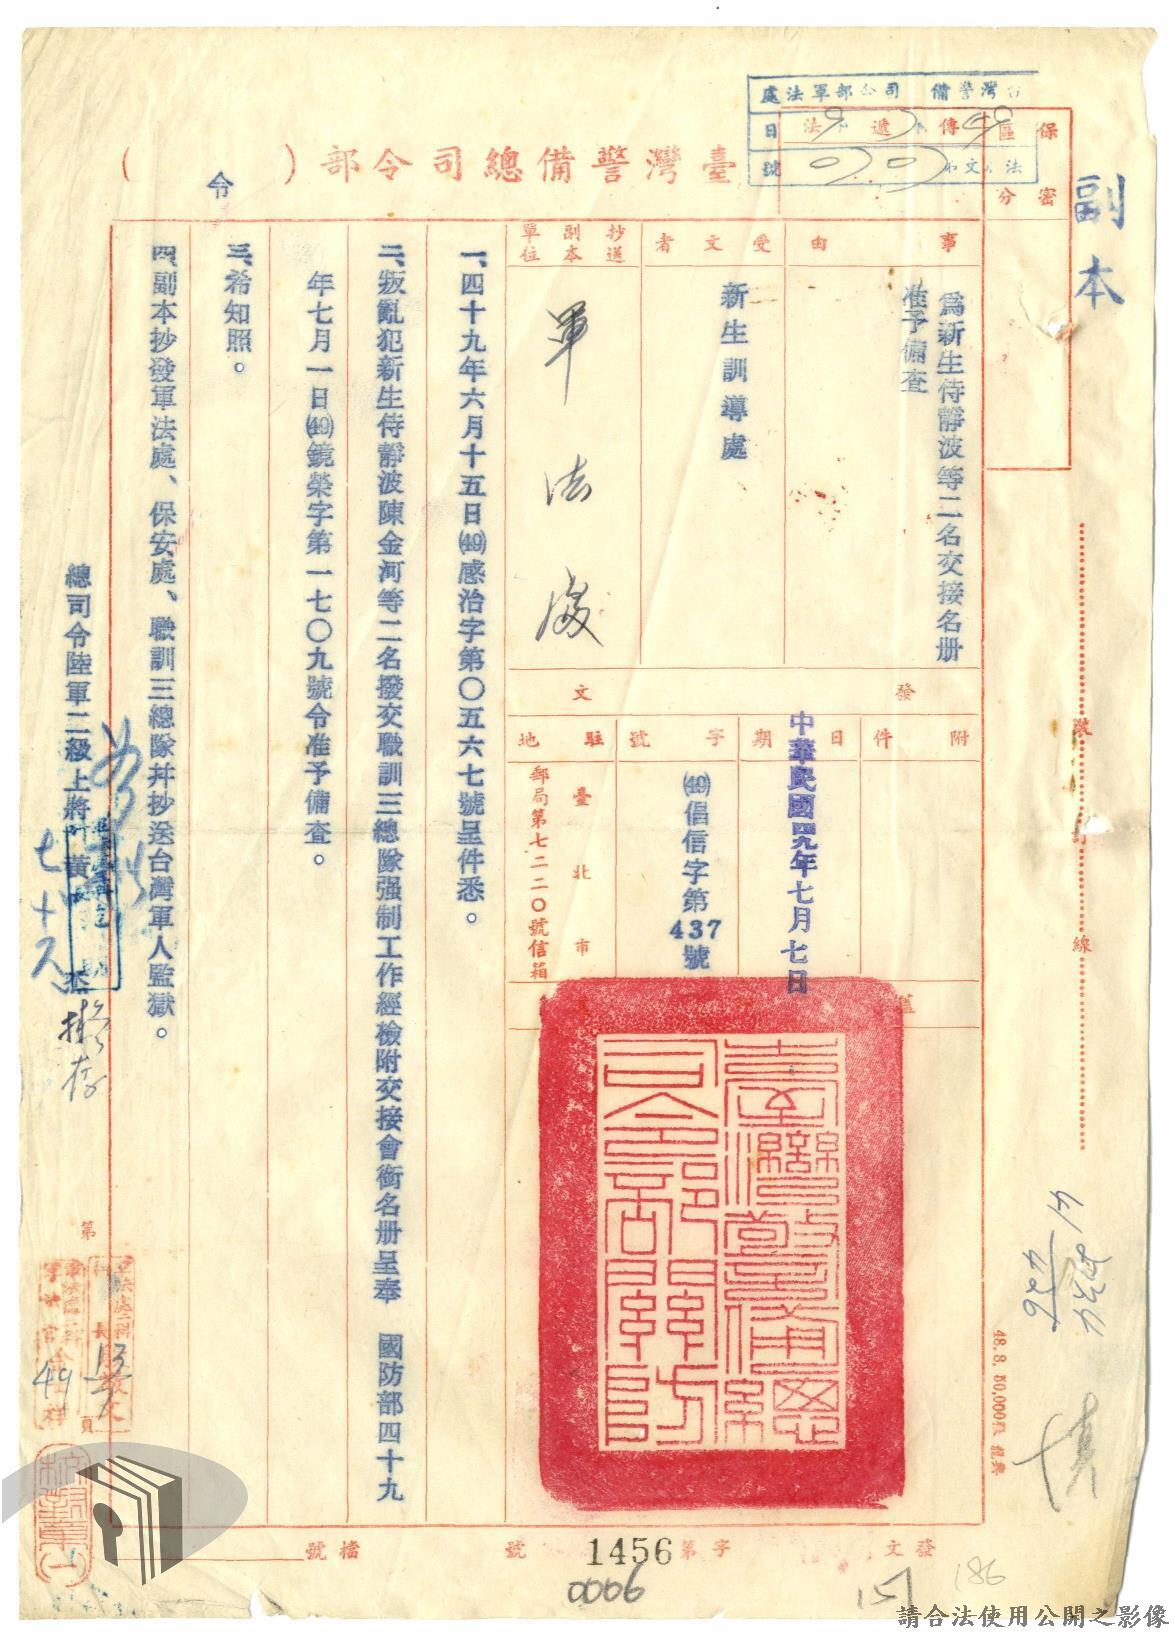 副本
臺灣警備總司令部
(令)
保密區分
傳遞
事由
為新生侍靜波等二名交接名册
准予備查
受文者
新生訓導處
抄送副本單位
軍法處
發文
附件
日期
中華民國四九年七月七日
字號
㊾倡信字第437號
駐地
臺北市
郵局第七二二〇號信箱
一、四十九年六月十五日㊾感治字第〇五六七號呈件悉。
二、叛亂犯新生侍靜波陳金河等二名撥交職訓三總隊强制工作經檢附交接會銜名册呈奉 國防部四十九
年七月一日㊾鏡榮字第一七〇九號令准予備查。
三、希知照。
四、副本抄發軍法處、保安處、職訓三總隊并抄送台灣軍人監獄。
總司令陸軍二級上將黃杰
七十八
擬存
臺灣警備總司令部關防
裝訂線
48.8. 50,000
第
頁
49
發文
字第1456號
檔號
0006
157
186
請合法使用公開之影像